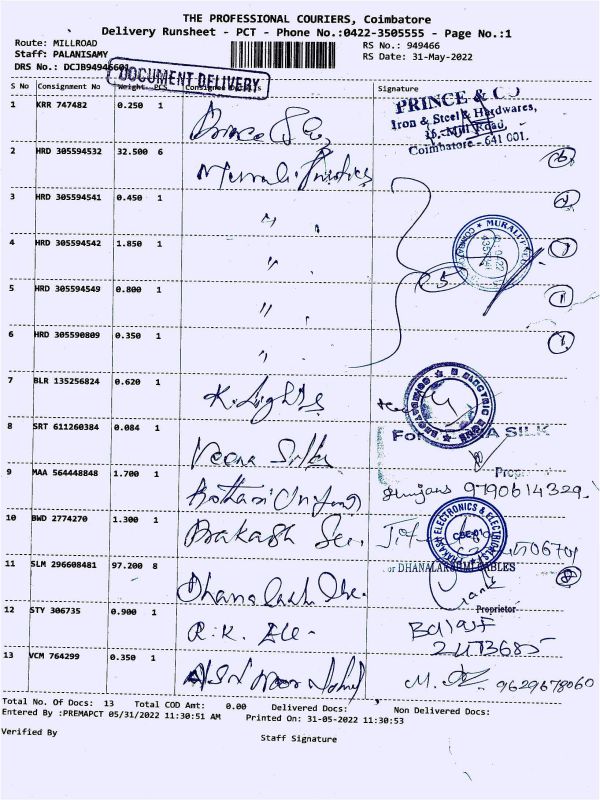 THE PROFESSIONAL COURIERS, Coimbatore
Delivery Runsheet - PCT - Phone No.:0422-3505555 - Page No.:1
Route: MILLROAD
RS No.: 949466
Staff: PALANISAMY
RS Date: 31-May-2022
DRS No.: DCJB94946601
DOCUMENT DELIVERY
S No Consignment No Weight PCS Consignee Details Signature
1 KRR 747482 0.250 1 Prince & Co
PRINCE & CO
Iron & Steel & Hardwares,
16, Mill Road,
Coimbatore - 641 001.
2 HRD 305594532 32.500 6
3 HRD 305594541 0.450 1 "
4 HRD 305594542 1.850 1 "
5 HRD 305594549 0.800 1 "
6 HRD 305590809 0.350 1 "
5
7 BLR 135256824 0.620 1 K. Lights
8 SRT 611260384 0.084 1 Veena Silks
SILK
Prop.
9 MAA 564448848 1.700 1 9790614329
10 BWD 2774270 1.300 1 Prakash
PRAKASH ELECTRONICS & ELECTRICALS
CBE-01
11 SLM 296608481 97.200 8
or DHANALAKSHMI CABLES
Proprietor
12 STY 306735 0.900 1 R.K. Ele-
Balaji
2473685
13 VCM 764299 0.350 1
M. 9629678060
Total No. Of Docs: 13 Total COD Amt: 0.00 Delivered Docs: Non Delivered Docs:
Entered By :PREMAPCT 05/31/2022 11:30:51 AM Printed On: 31-05-2022 11:30:53
Verified By
Staff Signature